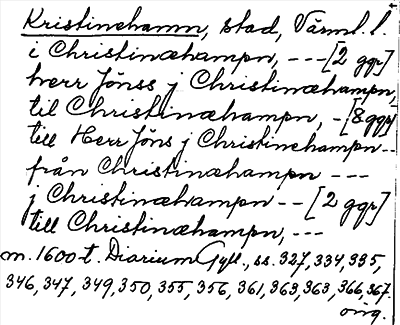 Kristinehamn, stad, Värml. l.
i Christinæhampn, --- [2 ggr]
herr Jönss j Christinæhampn,
til Christinæhampn, - [8 ggr]
till Herr Jöns j Christinehampn --
från Christinæhampn ---
j Christinæhampn -- [2 ggr]
till Christinæhampn, ---
m. 1600-t. Diarium Gyll., ss. 327, 334, 335,
346, 347, 349, 350, 355, 356, 361, 363, 363, 366, 367.
orig.